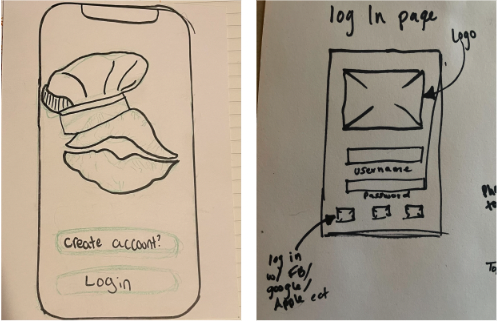 create account?
Login
log In page
Logo
username
Password
log in
w/ FB/
google/
Apple ect
Ph
to
To